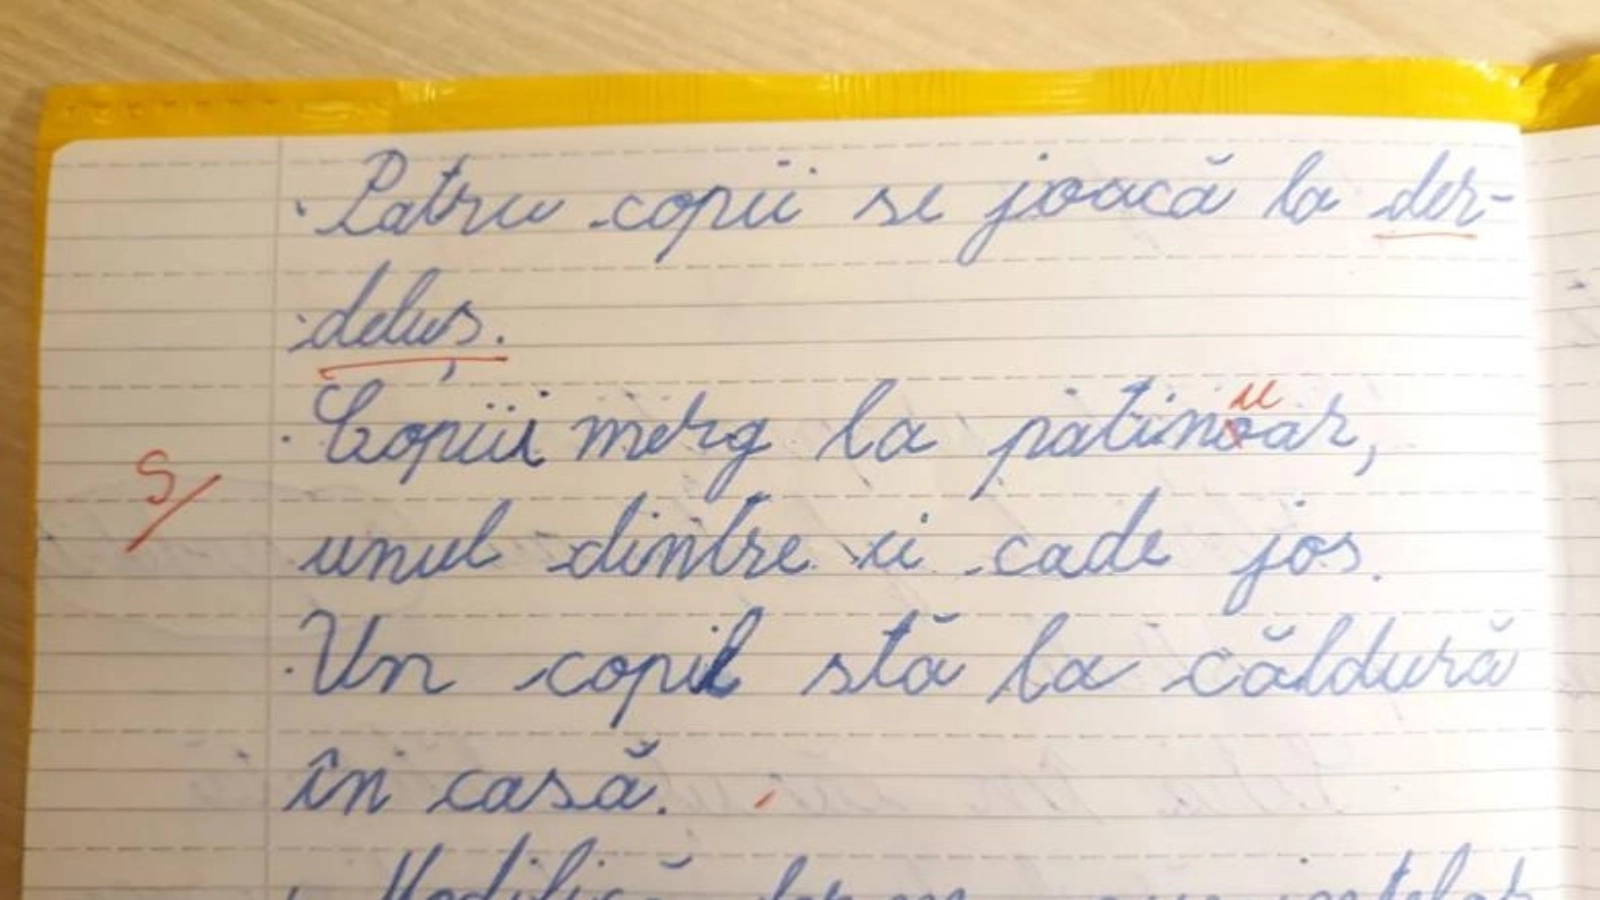 Patru copii se joacă la der-
deluș.
Copiii merg la patinoar,
u
S/
unul dintre ei cade jos.
Un copil stă la căldură
în casă.
Modifică